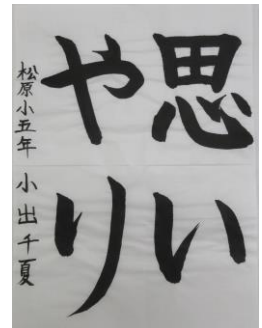 思い
やり
松原小五年 小出千夏